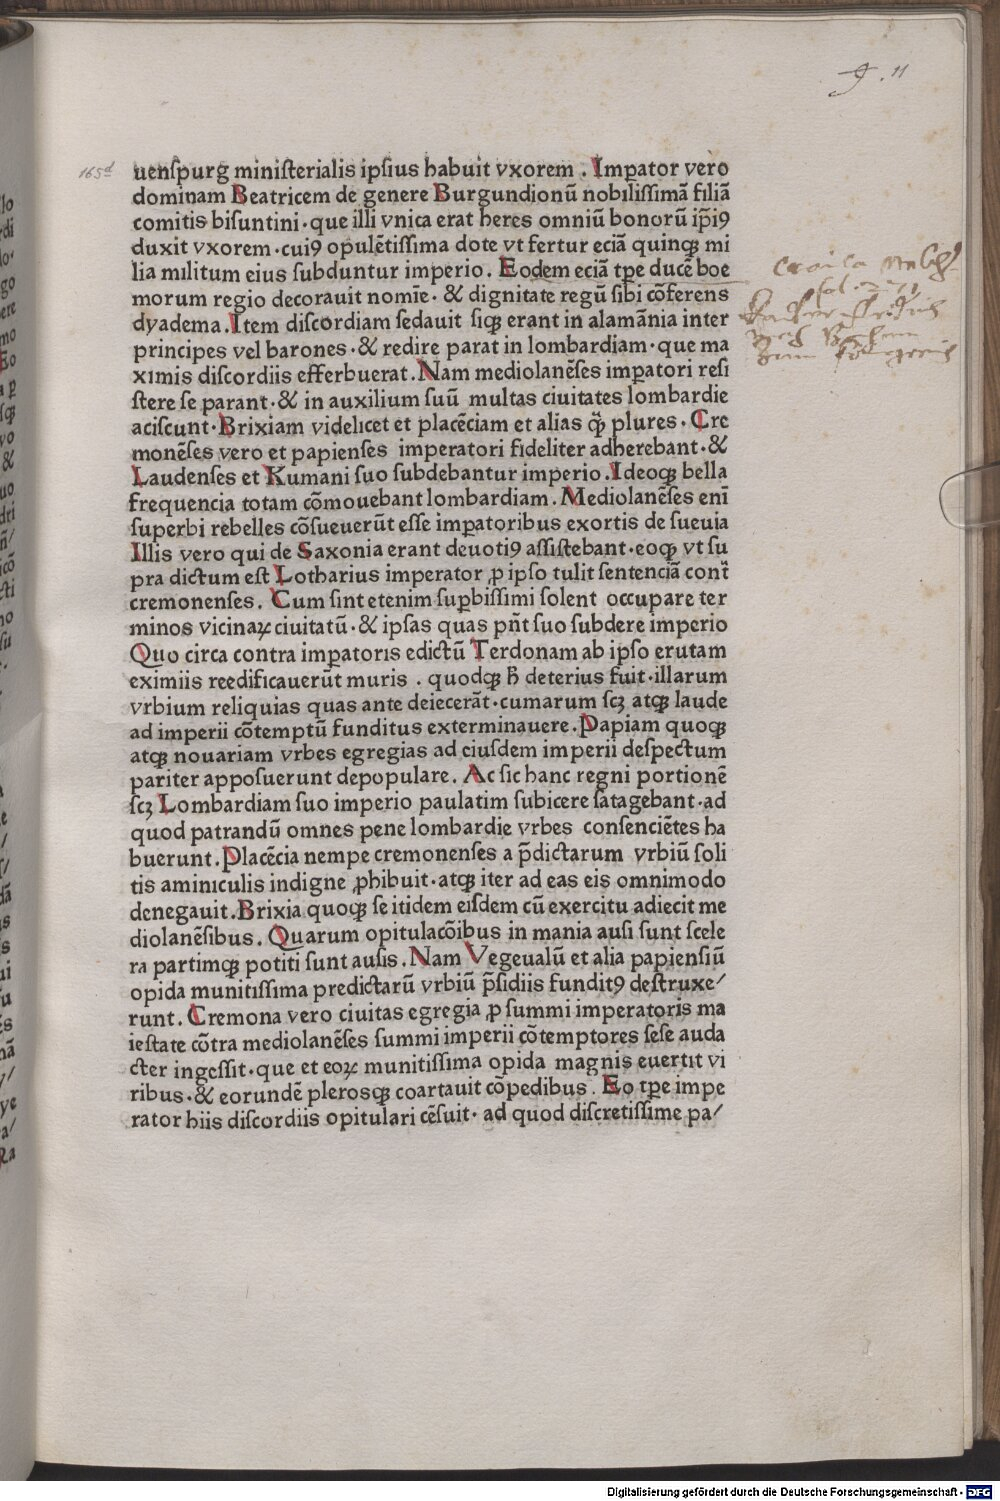 11
165d
uenſpurg miniſterialis ipſius habuit vxorem . Impator vero
dominam Beatricem de genere Burgundionū nobiliſſimā filiā
comitis biſuntini · que illi vnica erat heres omniū bonorū ip̄iꝰ
duxit vxorem · cuiꝰ opulētiſſima dote vt fertur eciā quinqꝫ mi
lia militum eius ſubduntur imperio . Eodem eciā tꝑe ducē boe
morum regio decorauit nomīe · & dignitate regū ſibi cōferens
dyadema . Item diſcordiam ſedauit ſiqꝫ erant in alamānia inter
principes vel barones · & redire parat in lombardiam · que ma
ximis diſcordiis efferbuerat . Nam mediolanēſes imꝑatori reſi
ſtere ſe parant · & in auxilium ſuū multas ciuitates lombardie
aciſcunt · Brixiam videlicet et placēciam et alias qꝫ̄ plures . Cre
monēſes vero et papienſes imperatori fideliter adherebant · &
Laudenſes et Kumani ſuo ſubdebantur imperio . Ideoqꝫ bella
frequencia totam cōmouebant lombardiam . Mediolanēſes enī
ſuperbi rebelles cōſueuerūt eſſe imꝑatoribus exortis de ſueuia
Illis vero qui de Saxonia erant deuotiꝰ aſſiſtebant · eoqꝫ vt ſu
pra dictum eſt Lotharius imperator ꝓ ipſo tulit ſentenciā cont̄
cremonenſes . Cum ſint etenim ſuꝑbiſſimi ſolent occupare ter
minos vicinaꝝ ciuitatū · & ipſas quas pn̄t ſuo ſubdere imperio
Quo circa contra imꝑatoris edictū Terdonam ab ipſo erutam
eximiis reedificauerūt muris . quodqꝫ h̄ deterius fuit · illarum
vrbium reliquias quas ante deiecerāt · cumarum ſcꝫ atqꝫ laude
ad imperii cōtemptū funditus exterminauere . Papiam quoqꝫ
atqꝫ nouariam vrbes egregias ad eiuſdem imperii deſpectum
pariter appoſuerunt depopulare . Ac ſic hanc regni portionē
ſcꝫ Lombardiam ſuo imperio paulatim ſubicere ſatagebant · ad
quod patrandū omnes pene lombardie vrbes conſenciētes ha
buerunt . Placēcia nempe cremonenſes a p̄dictarum vrbiū ſoli
tis aminiculis indigne ꝓhibuit · atqꝫ iter ad eas eis omnimodo
denegauit . Brixia quoqꝫ ſe itidem eiſdem cū exercitu adiecit me
diolanēſibus . Quarum opitulacōibus in mania auſi ſunt ſcele
ra partimqꝫ potiti ſunt auſis . Nam Vegeualū et alia papienſiū
opida munitiſſima predictarū vrbiū p̄ſidiis funditꝰ deſtruxe/
runt . Cremona vero ciuitas egregia ꝓ ſummi imperatoris ma
ieſtate cōtra mediolanēſes ſummi imperii cōtemptores ſeſe auda
cter ingeſſit · que et eoꝝ munitiſſima opida magnis euertit vi
ribus · & eorundē pleroſqꝫ coartauit cōpedibus . Eo tꝑe impe
rator hiis diſcordiis opitulari cēſuit · ad quod diſcretiſſime pa/
Digitalisierung gefördert durch die Deutsche Forschungsgemeinschaft · DFG